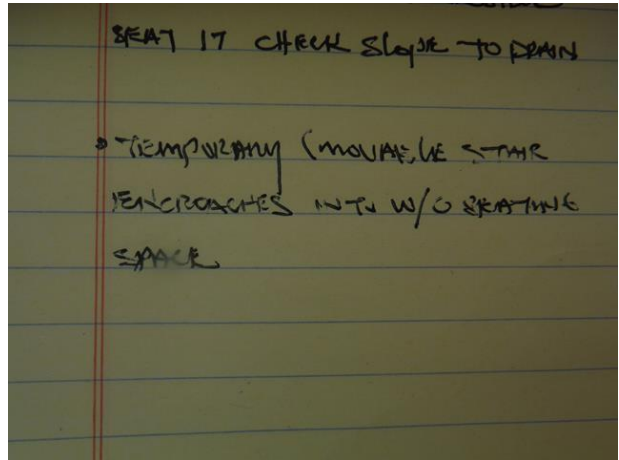 SEAT 17 CHECK SLOPE TO DRAIN
• TEMPORARY (MOVABLE STAIR
ENCROACHES INTO W/C SEATING
SPACE